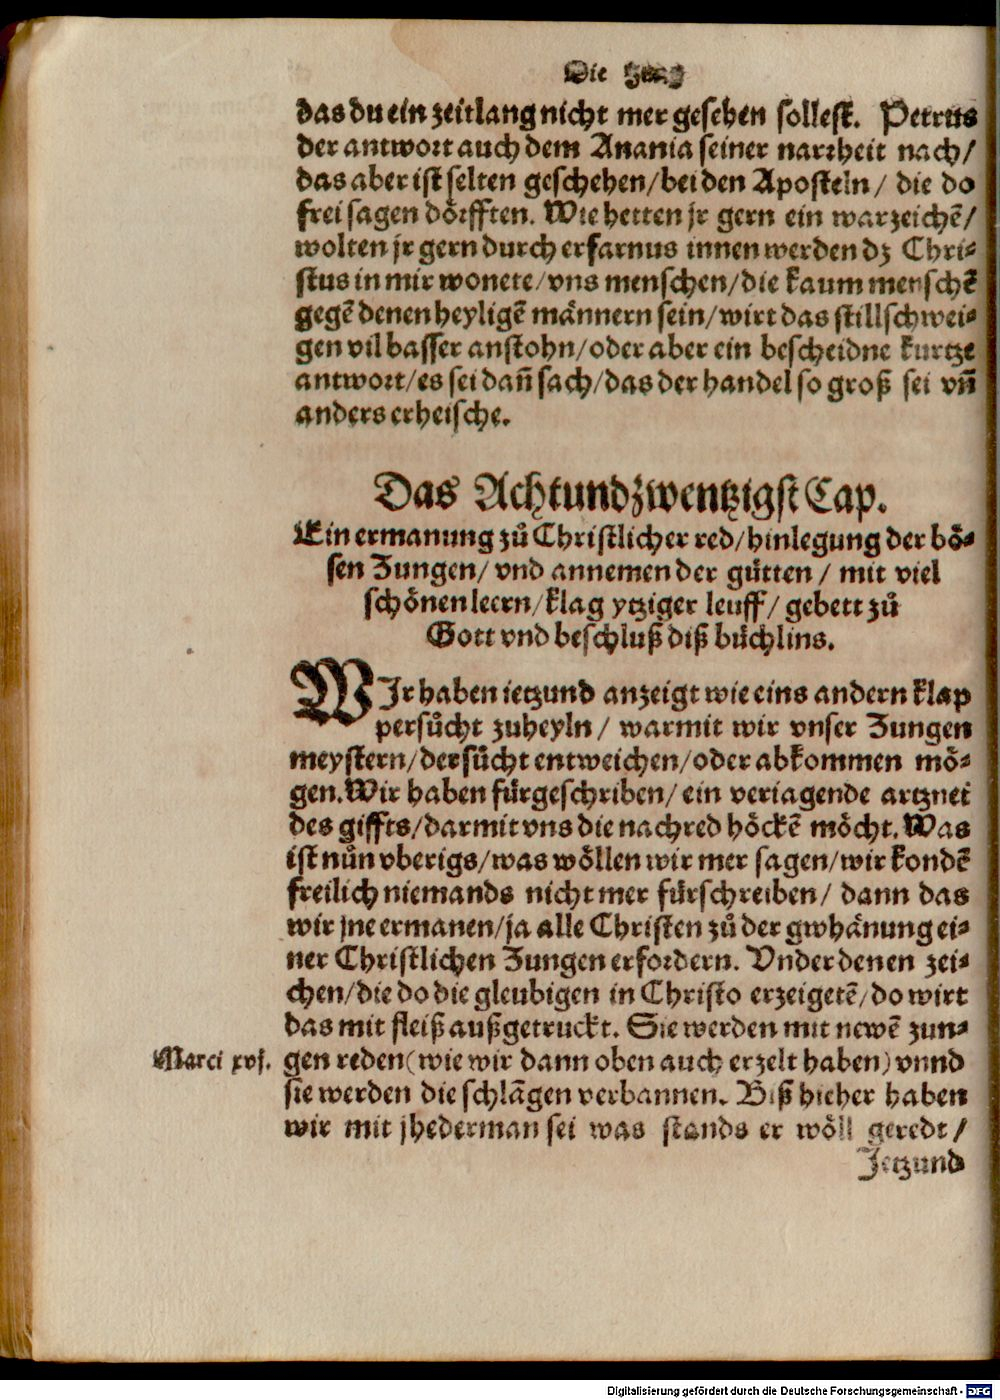 Die Zung
das du ein zeitlang nicht mer gesehen sollest. Petrus
der antwort auch dem Anania seiner narrheit nach/
das aber ist selten geschehen/bei den Aposteln/ die do
frei sagen dörfften. Wie hetten jr gern ein warzeichē/
wolten jr gern durch erfarnus innen werden dz Chri-
stus in mir wonete/vns menschen/die kaum menschē
gegē denen heyligē männern sein/wirt das stillschwei-
gen vil basser anstohn/oder aber ein bescheidne kurtze
antwort/es sei dañ sach/das der handel so groß sei vñ
anders erheische.
Das Achtundzwentzigst Cap.
Ein ermanung zů Christlicher red/hinlegung der bö-
sen Zungen/ vnd annemen der gütten/ mit viel
schönen leern/klag ytziger leuff/ gebett zů
Gott vnd beschluß diß büchlins.
WJr haben ietzund anzeigt wie eins andern klap
persücht zuheyln/ warmit wir vnser Zungen
meystern/der sücht entweichen/oder abkommen mö-
gen. Wir haben fürgeschriben/ ein veriagende artznei
des giffts/darmit vns die nachred höckē möcht. Was
ist nůn vberigs/was wöllen wir mer sagen/wir kondē
freilich niemands nicht mer fürschreiben/ dann das
wir jne ermanen/ja alle Christen zů der gwhänung ei-
ner Christlichen Zungen erfordern. Vnder denen zei-
chen/die do die gleubigen in Christo erzeigetē/do wirt
das mit fleiß außgetruckt. Sie werden mit newē zun-
Marci xvj. gen reden(wie wir dann oben auch erzelt haben)vnnd
sie werden die schlāgen verbannen. Biß hieher haben
wir mit jhederman sei was stands er wöll geredt/
Jetzund
Digitalisierung gefördert durch die Deutsche Forschungsgemeinschaft - DFG